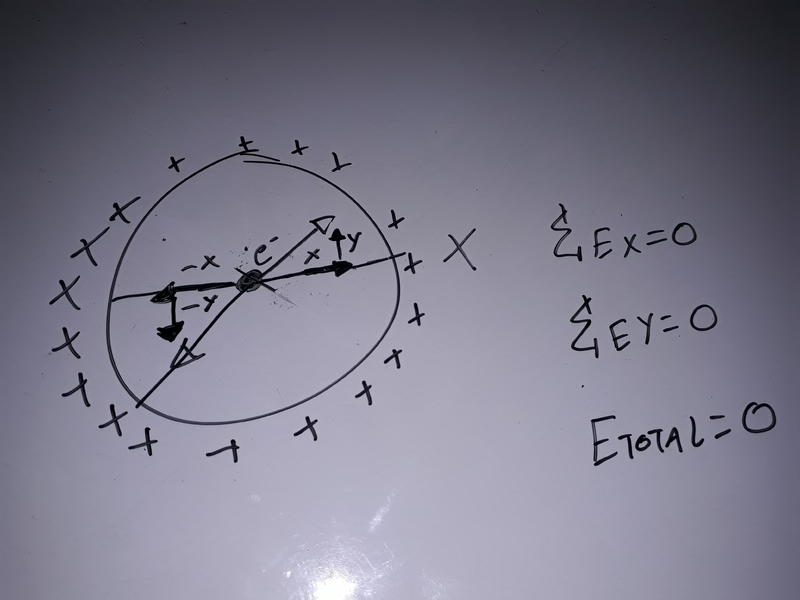 + + + +
+ +
+ +
e⁻
-x x y X
+ +
-y
+ +
+ +
+ +
+ + +
ΣEx=0
ΣEY=0
ETOTAL=0